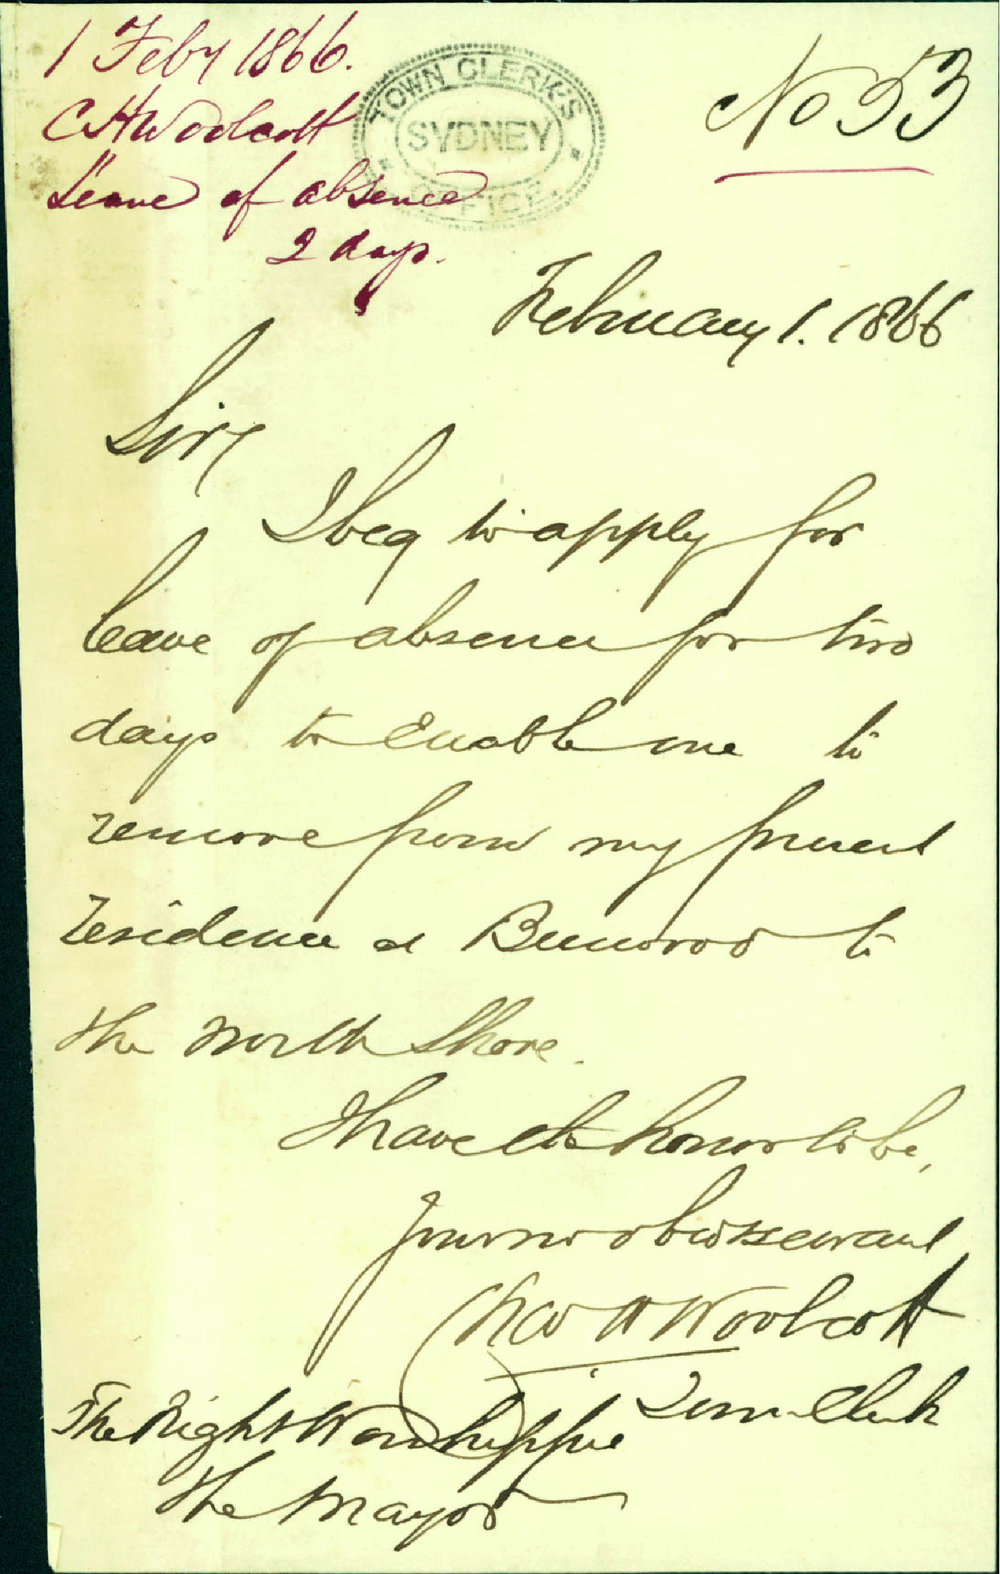 1 Feby 1866.
C H Woolcott
Leave of absence
2 days.
TOWN CLERK'S
SYDNEY
OFFICE
No 53
February 1. 1866
Sir,
I beg to apply for
leave of absence for two
days to Enable me to
remove from my present
residence at Burwood to
the North Shore.
I have the honor to be,
Your mo obdt servant,
Chas H Woolcott
Town Clerk
The Right Worshipful
the Mayor